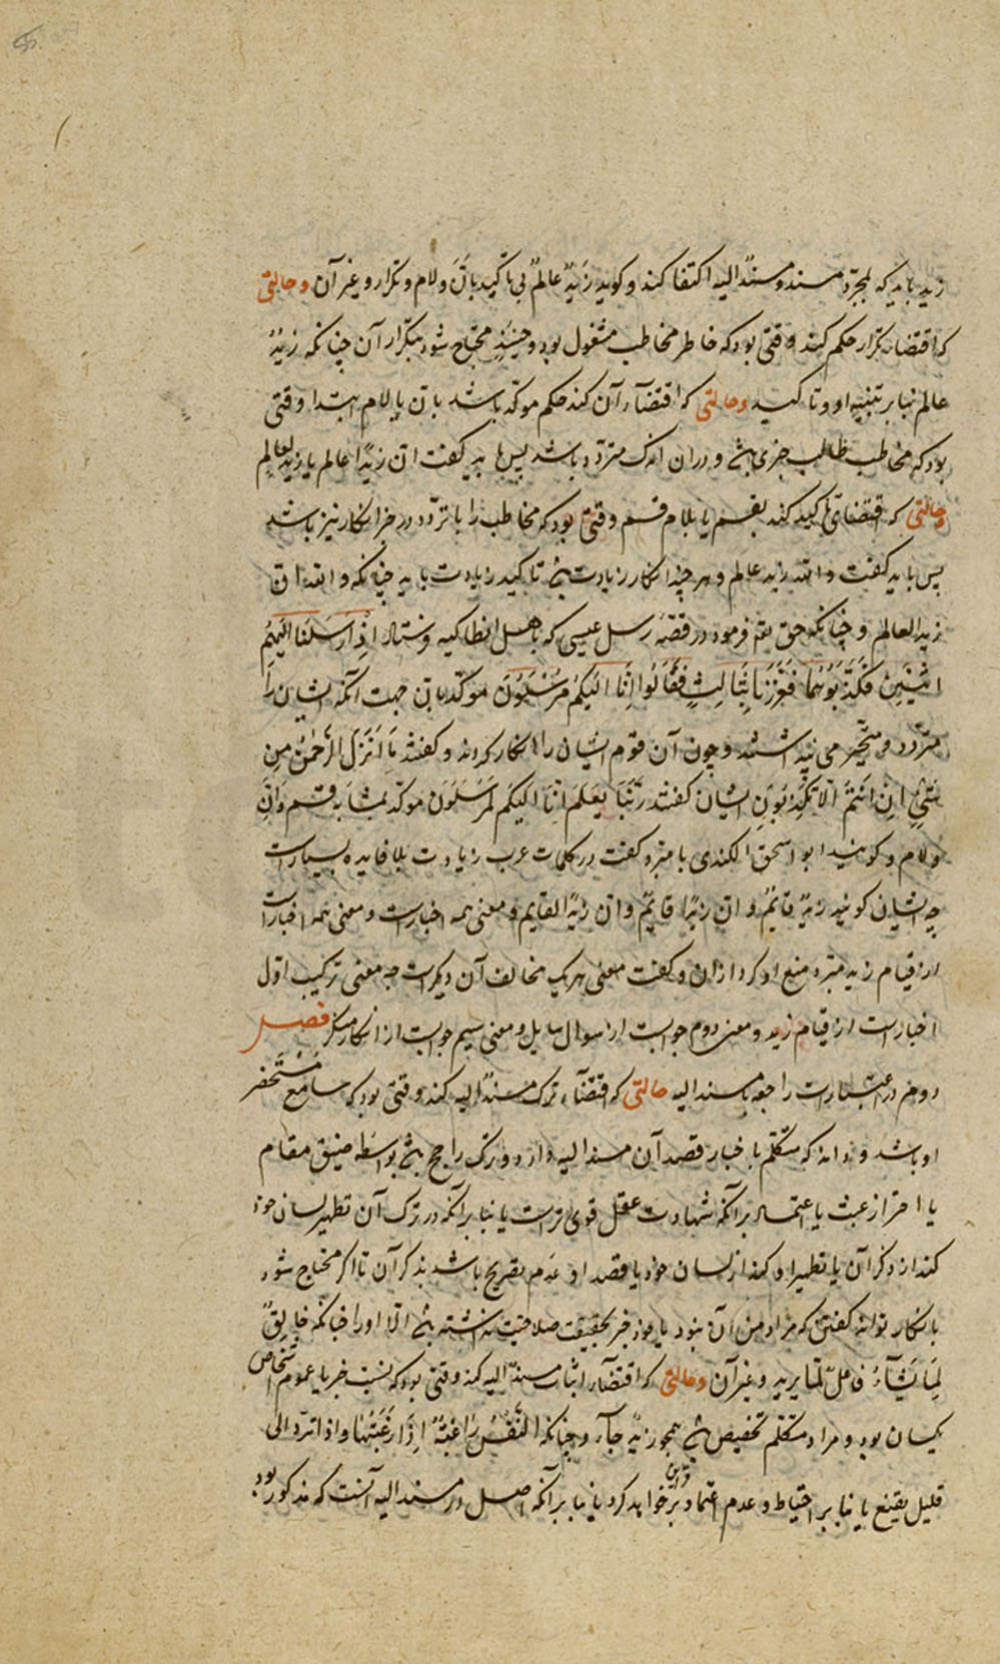 زید باید که بمجرّد مسند و مسندٌ الیه اکتفا کند و کوید زَیدٌ عالمٌ بی تاکید باِنَّ و لام و تکرار و غیر آن و حالتی
که اقتضاء تکرار حکم کند وقتی بود که خاطر مخاطب مشغول بود و حینئذٍ محتاج شود بتکرار آن چنانکه زیدٌ
عالم بنا بر تنبیه او و تاکید و حالتی که اقتضآء آن کند حکم موکّد باشد بانّ یا لام ابتدا وقتی
بود که مخاطب طالب خبری باشد و در ان اندک متردّد باشد پس باید کفت انّ زیدًا عالم یا زیدٌ لعالم
و حالتی که اقتضای تاکید کند بقسم یا بلام قسم وقتی بود که مخاطب را با تردّد در خبر انکار نیز باشد
پس باید کفت و الله زید عالم و هر چند انکار زیادت شود تاکید زیادت باید چنانکه و الله انّ
زیدًا لعالم و چنانکه حق تعـ فرمود در قصّهٔ رسل عیسی که باهل انطاکیه فرستاد اِذ اَرسَلنَا اِلَیهِمُ
اثنَینِ فَکَذَّبُوهُمَا فَعَزَّزنَا بِثَالِثٍ فَقَالُوا اِنَّا اِلَیکُم مُرسَلُونَ موکّد بانّ جهت آنکه ایشان را
متردّد و متحیّر می پنداشتند و چون آن قوم ایشان را انکار کردند و کفتند مَا اَنزَلَ الرَّحمٰنُ مِن
شَیءٍ اِن اَنتُم اِلَّا تَکذِبُونَ ایشان کفتند رَبُّنَا یَعلَمُ اِنَّا اِلَیکُم لَمُرسَلُونَ موکّد بمشابه قسم و انّ
و لام و کویند ابو اسحق الکندی با مبرّد کفت در کلمات عرب زیادت بلا فایده بسیارست
چه ایشان کویند زیدٌ قایمٌ و انّ زیدًا قایمٌ و انّ زیدًا لقایم و معنی همه اخبارست و معنی همه اخبارست
از قیام زید مبرّد منع او کرد از ان و کفت معنی هر یک مخالف آن دیکرست چه معنی ترکیب اوّل
اخبارست از قیام زید و معنی دوم جوابست از سوال سایل و معنی سیم جوابست از انکار منکر فصل
دوم در اعتبارات راجعه با مسند الیه حالتی که اقتضآء ترک مسندٌ الیه کند وقتی بود که سامع مستحضر
او باشد و داند که متکلّم با خبار قصد آن مسند الیه دارد و ترک راجح باشد بواسطه ضیق مقام
یا احتراز از عبث یا اعتماد بر آنکه شهادت عقل قوی ترست یا بنا بر آنکه در ترک آن تطهیر لسان خود
کند از ذکر آن یا تطهیر او کند از لسان خود یا قصد او عدم تصریح باشد بذکر آن تا اکر محتاج شود
بانکار تواند کفتن که مراد من آن نبود یا خبر بحقیقت صلاحیّت نداشته باشد الّا او را چنانکه خَالِقٌ
لِمَا یَشَآءُ فاعلٌ لما یرید و غیر آن و حالتی که اقتضآء اثبات مسندٌ الیه کند وقتی بود که نسبت خبر با عموم اشخاص
یکسان بود و مراد متکلّم تخصیص باشد همچو زیدٌ جآء و چنانکه النَّفسُ رَاغِبَةٌ اِذَا رَغَّبتَهَا و اذا تردّ الی
قلیل تقنع یا بنا بر احتیاط و عدم اعتماد بر قراین خواهد کرد یا بنا بر آنکه اصل در مسند الیه آنست که مذکور بود